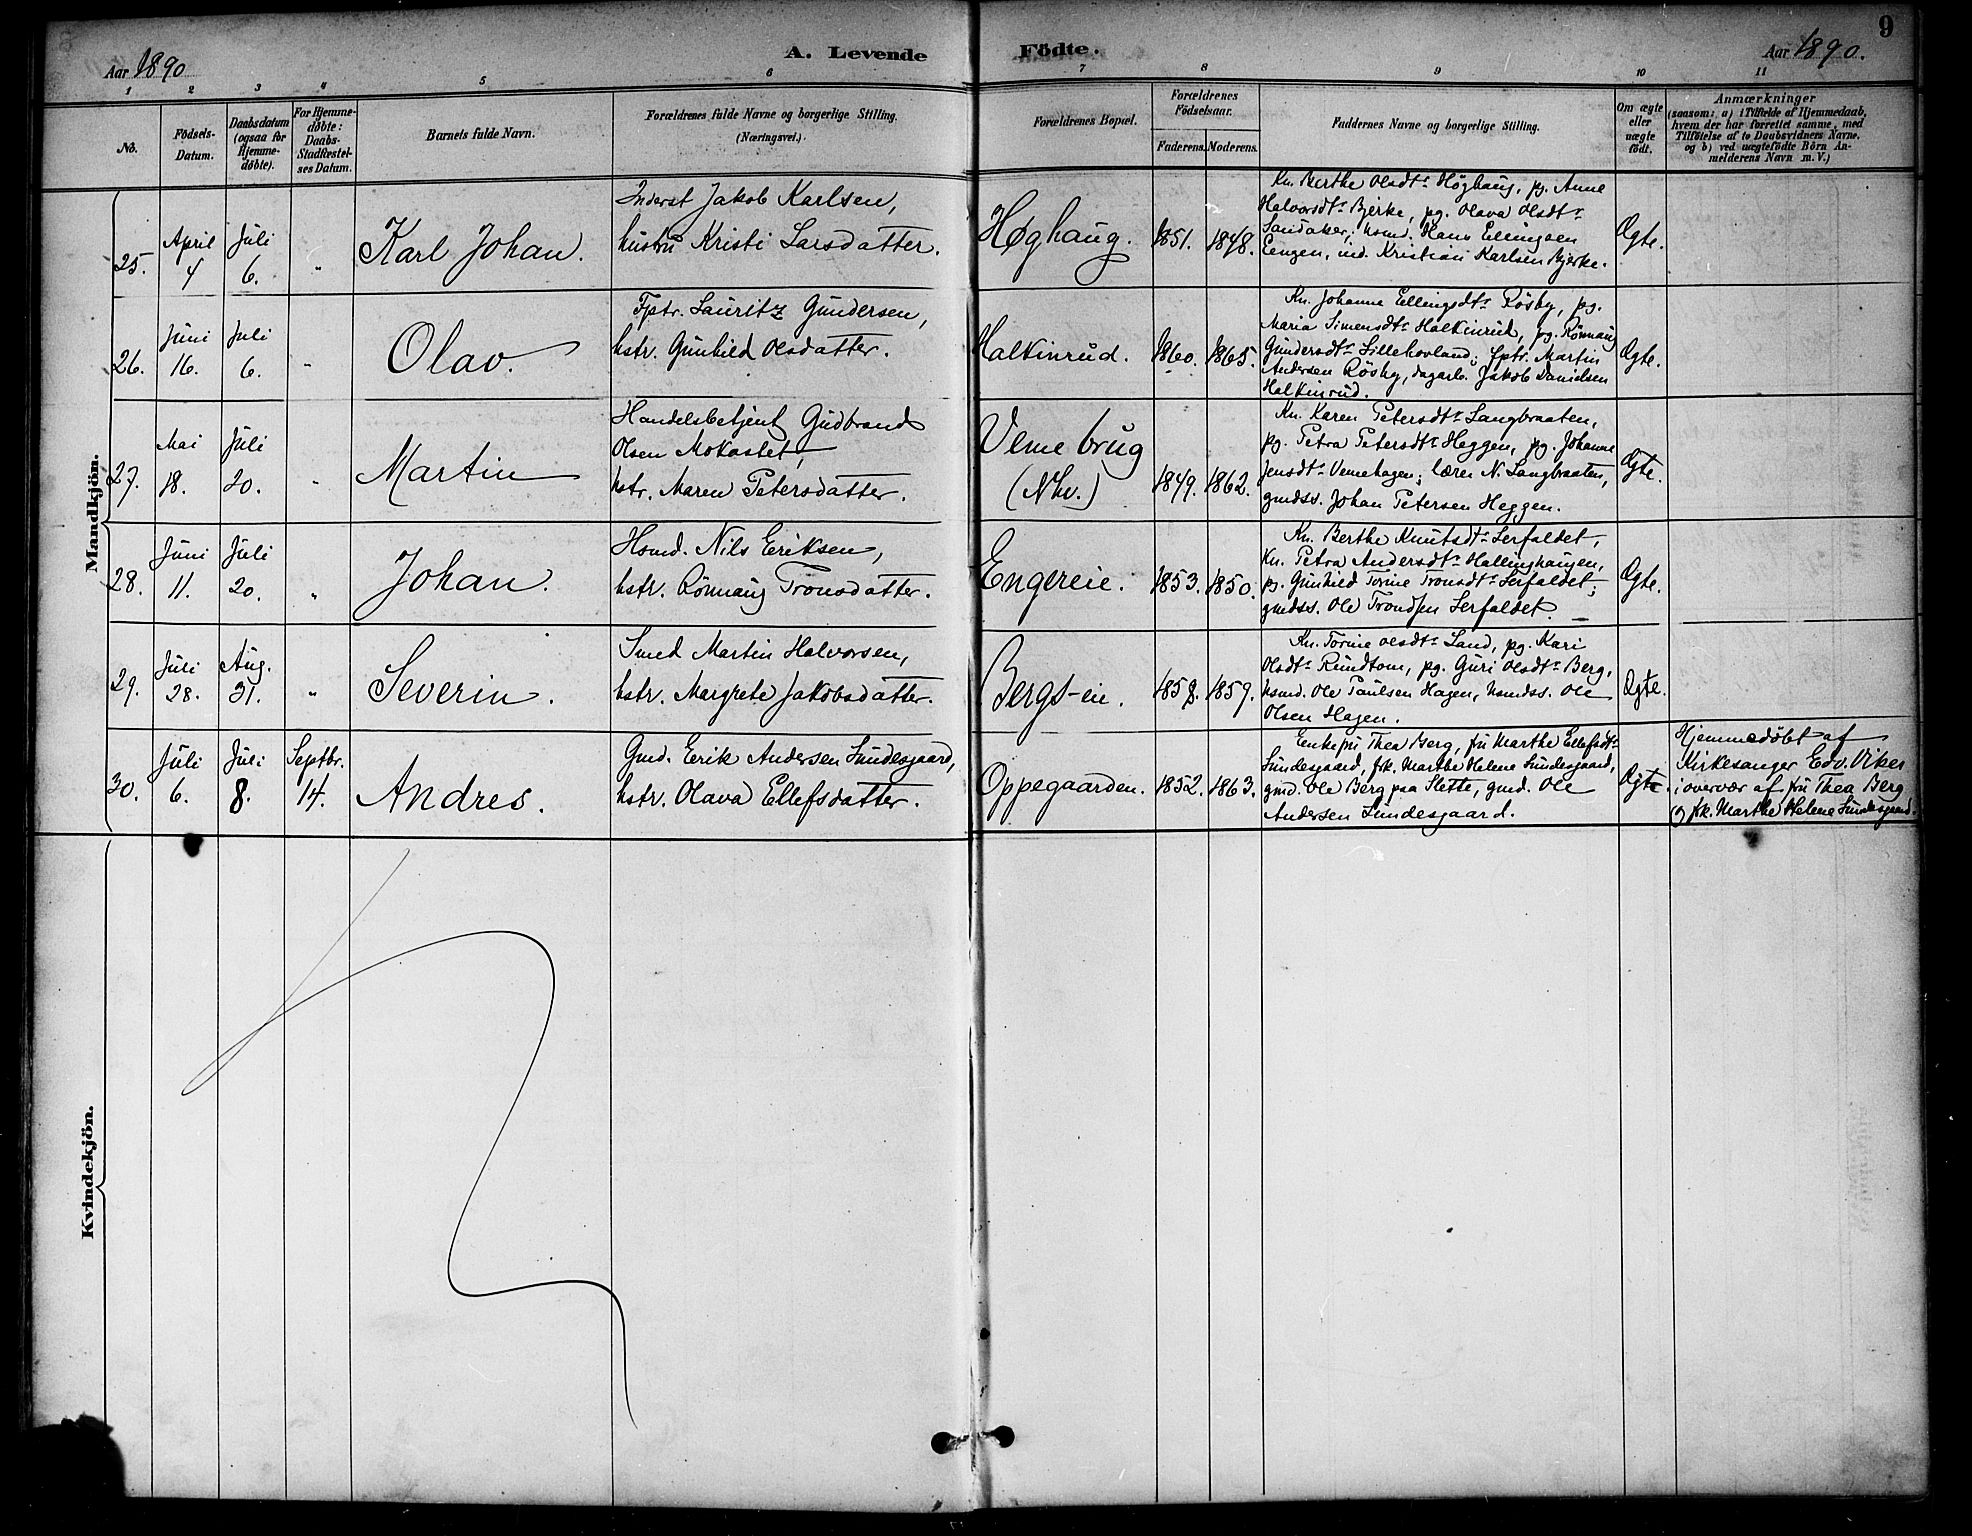 9
Aar 1890
A. Levende Födte.
Aar 1890.
1 2 3 4 5 6 7 8 9 10 11
No.
Födsels-
Datum.
Daabsdatum
(ogsaa for
Hjemme-
døbte).
For Hjemme-
døbte:
Daabs-
Stadfæstel-
ses Datum.
Barnets fulde Navn.
Forældrenes fulde Navne og borgerlige Stilling.
(Næringsvei.)
Forældrenes Bopæl.
Forældrenes
Födselsaar.
Faderens. Moderens.
Faddernes Navne og borgerlige Stilling.
Om ægte
eller
uægte
født.
Anmærkninger
(saasom: a) i Tilfælde af Hjemmedaab,
hvem der har forrettet samme, med
Tilföielse af to Daabsvidners Navne,
og b) ved uægtefödte Börn An-
melderens Navn m. V.)
Mandkjön.
25.
April
4
Juli
6.
"
Karl Johan.
Inderst Jakob Karlsen,
hustru Kristi Larsdatter.
Høghaug.
1851. 1848.
Kn. Berthe Olsdtr Höghaug, pg. Anne
Halvorsdtr Bjerke, pg. Olava Olsdtr
Sandaker; husmd. Hans Ellingsen
Eengen, ind. Kristian Karlsen Bjerke.
Ægte.
26.
Juni
16.
Juli
6.
"
Olav.
Fptr. Lauritz Gundersen,
hstr. Gunhild Olsdatter.
Halkinrud.
1860. 1865.
Kn. Johanne Ellingsdtr Rösby, pg.
Maria Simensdtr Halkinrud, pg. Rönnaug
Gundersdtr Lillehovland; fptr. Martin
Andersen Rösby, dagarb. Jakob Danielsen
Halkinrud.
Ægte.
27.
Mai
18.
Juli
20.
"
Martin
Handelsbetjent Gudbrand
Olsen Mokastet,
hstr. Maren Petersdatter.
Veme brug
(Nhv.)
1849. 1862.
Kn. Karen Petersdtr Langbraaten,
pg. Petra Petersdtr Heggen, pg. Johanne
Jensdtr Vemehagen; lærer N. Langbraaten,
gmdss. Johan Petersen Heggen.
Ægte.
28.
Juni
11.
Juli
20.
"
Johan.
Hsmd. Nils Eriksen,
hstr. Rönnaug Tronsdatter.
Engereie.
1853. 1850.
Kn. Berthe Knutsdtr Lerfaldet,
Kn. Petra Andersdtr Hallinghaugen,
pg. Gunhild Torine Tronsdtr Lerfaldet;
gmdss. Ole Trondsen Lerfaldet.
Ægte.
29.
Juli
28.
Aug.
31.
"
Severin.
Smed Martin Halvorsen,
hstr. Margrete Jakobsdatter.
Bergs-eie.
1858. 1859.
Kn. Torine Olsdtr Land, pg. Kari
Olsdtr Rundtom, pg. Guri Olsdtr Berg,
husmd. Ole Paulsen Hagen, husmdss. Ole
Olsen Hagen.
Ægte.
30.
Juli
6.
Juli
8.
Septbr.
14.
Andres.
Gmd. Erik Andersen Sundesgaard,
hstr. Olava Ellefsdatter.
Oppegaarden.
1852. 1863.
Enkefru Thea Berg, fru Marthe Ellefsdtr
Sundesgaard, frk. Marthe Helene Sundesgaard,
gmd. Ole Berg paa Slette, gmd. Ole
Andersen Sundesgaard.
Ægte.
Hjemmedöbt af
Kirkesanger Edv. Viker
i overvær af fru Thea Berg
og frk. Marthe Helene Sundesgaard.
Kvindekjön.